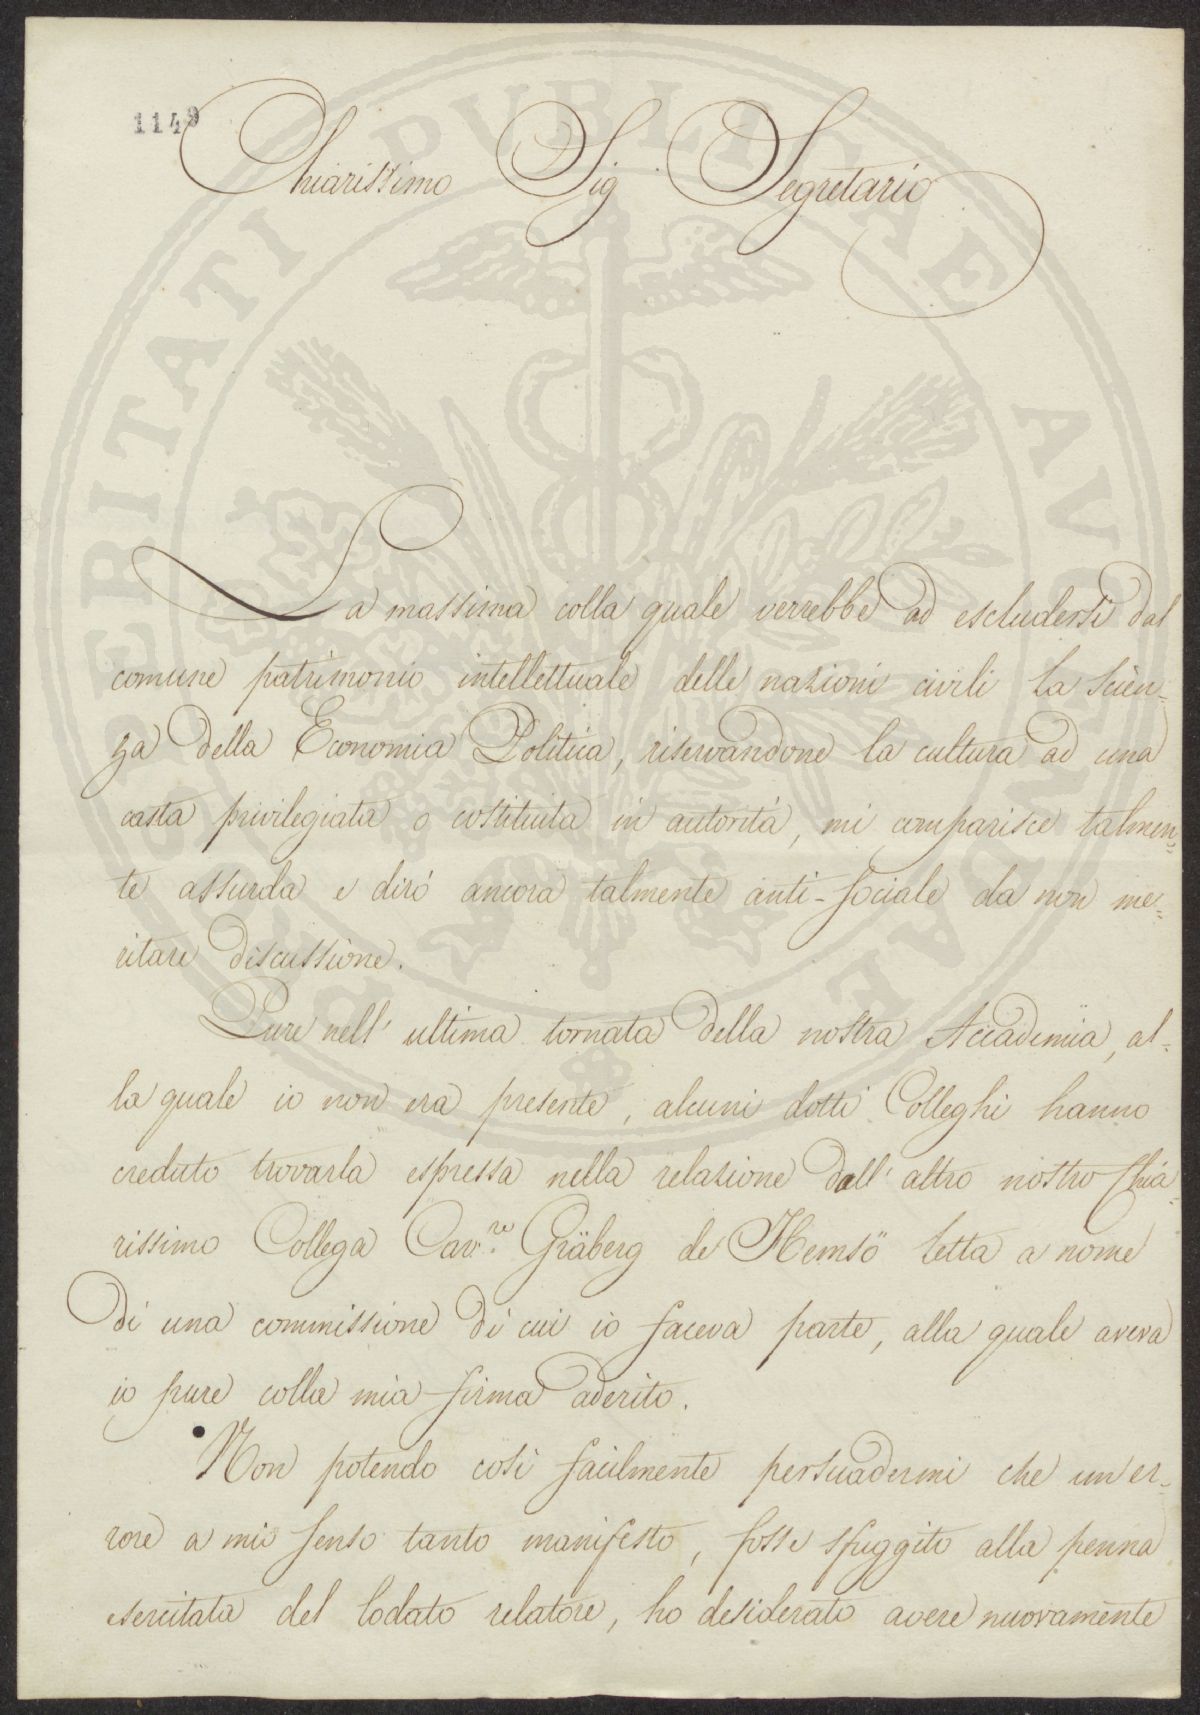 1149
Chiarissimo Sig Segretario
La massima colla quale verrebbe ad escludersi dal
comune patrimonio intellettuale delle nazioni civili la Scien-
za della Economia Politica, riservandone la cultura ad una
casta privilegiata o costituita in autorità, mi comparisce talmen=
te assurda e dirò ancora talmente anti-sociale da non me=
ritare discussione.
Pure nell' ultima tornata della nostra Accademia, al=
la quale io non era presente, alcuni dotti Colleghi hanno
creduto trovarla espressa nella relazione dall' altro nostro Chia=
rissimo Collega Cav.re Gräberg de Hemsö letta a nome
di una commissione di cui io faceva parte, alla quale aveva
io pure colla mia firma aderito.
Non potendo così facilmente persuadermi che un er=
rore a mio senso tanto manifesto, fosse sfuggito alla penna
esercitata del lodato relatore, ho desiderato avere nuovamente
PROSPERITATI PVBLICAE AVGENDAE